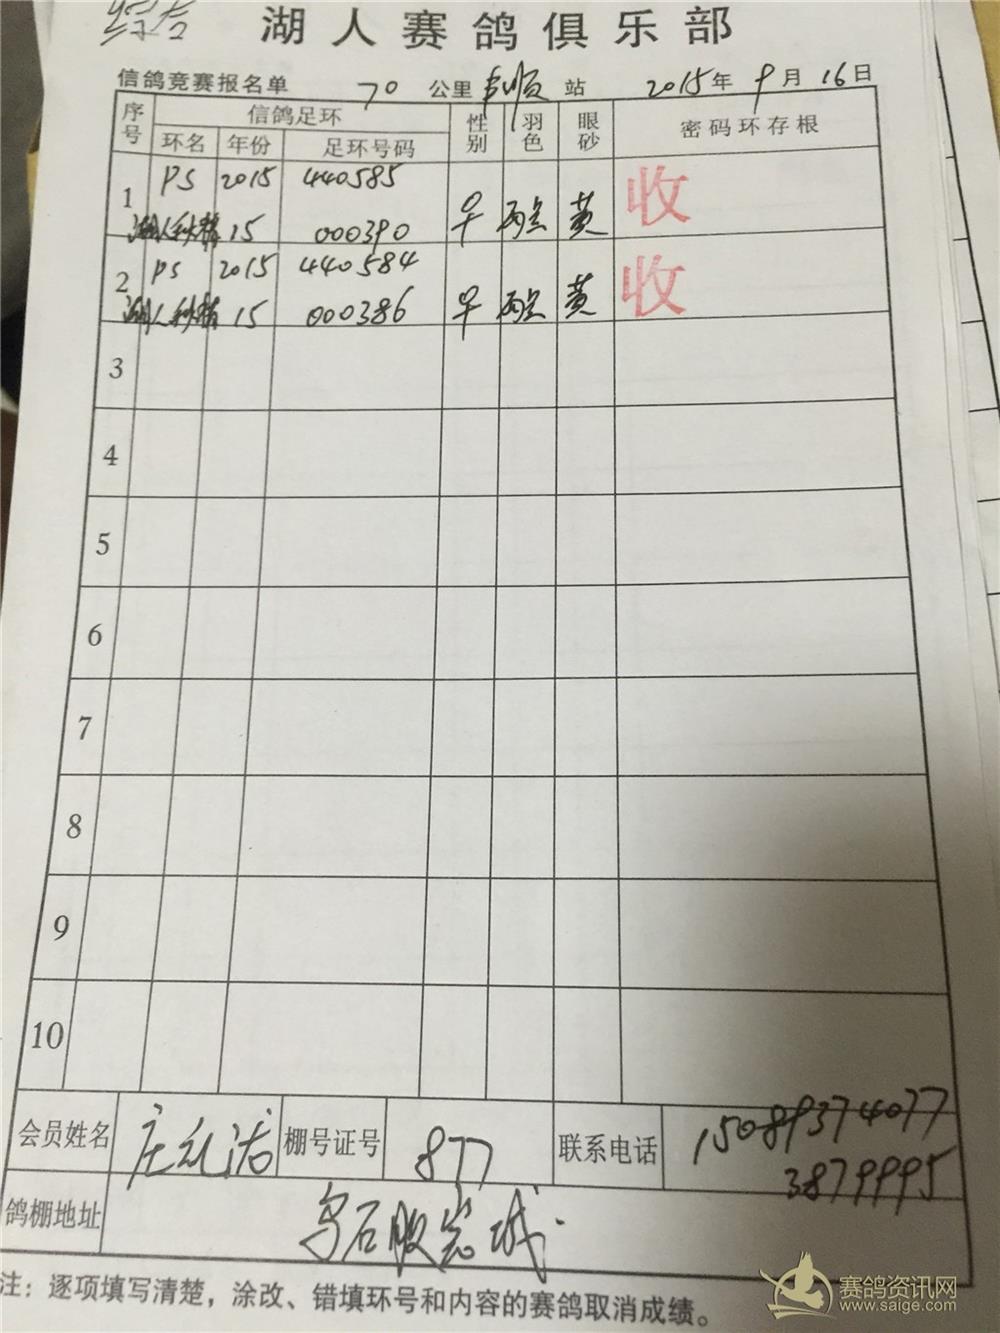 综合
湖人赛鸽俱乐部
信鸽竞赛报名单 70 公里 站 2015年9月16日
序号 信鸽足环 性别 羽色 眼砂 密码环存根
环名 年份 足环号码
1 PS 2015 440585 收
湖人秋棚 15 000390 ♀ 雨点 黄
2 PS 2015 440584 收
湖人秋棚 15 000386 ♀ 雨点 黄
3
4
5
6
7
8
9
10
会员姓名 庄 棚号证号 877 联系电话 15089374077
3879995
鸽棚地址 乌石服 城
注：逐项填写清楚，涂改、错填环号和内容的赛鸽取消成绩。
赛鸽资讯网
www.saige.com